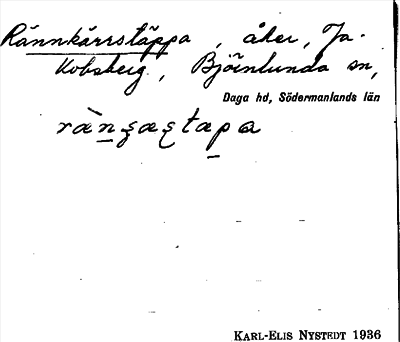 Rännkärrstäppa, åker, Ja-
kobsberg, Björnlunda sn,
Daga hd, Södermanlands län
KARL-ELIS NYSTEDT 1936